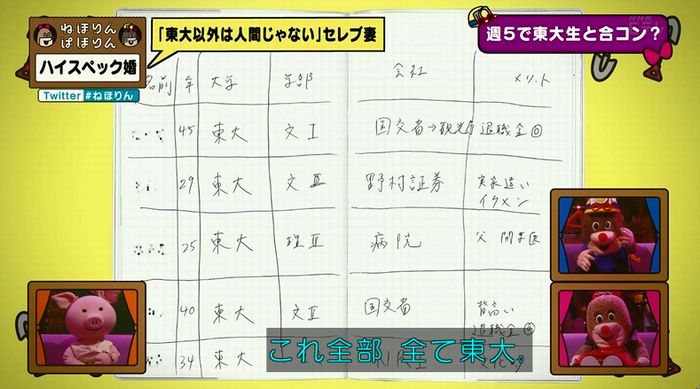 ねほりん
ぱほりん
ハイスペック婚
Twitter #ねほりん
「東大以外は人間じゃない」セレブ妻
NHK
週5で東大生と合コン?
名前 年 大学 学部 会社 メリット
45 東大 文I 国交省→観光庁 退職金◎
29 東大 文II 野村証券 実家遠い
イケメン
25 東大 理III 病院 父 開業医
40 東大 文II 国交省 背高い
退職金◎
34 東大
これ全部 全て東大。